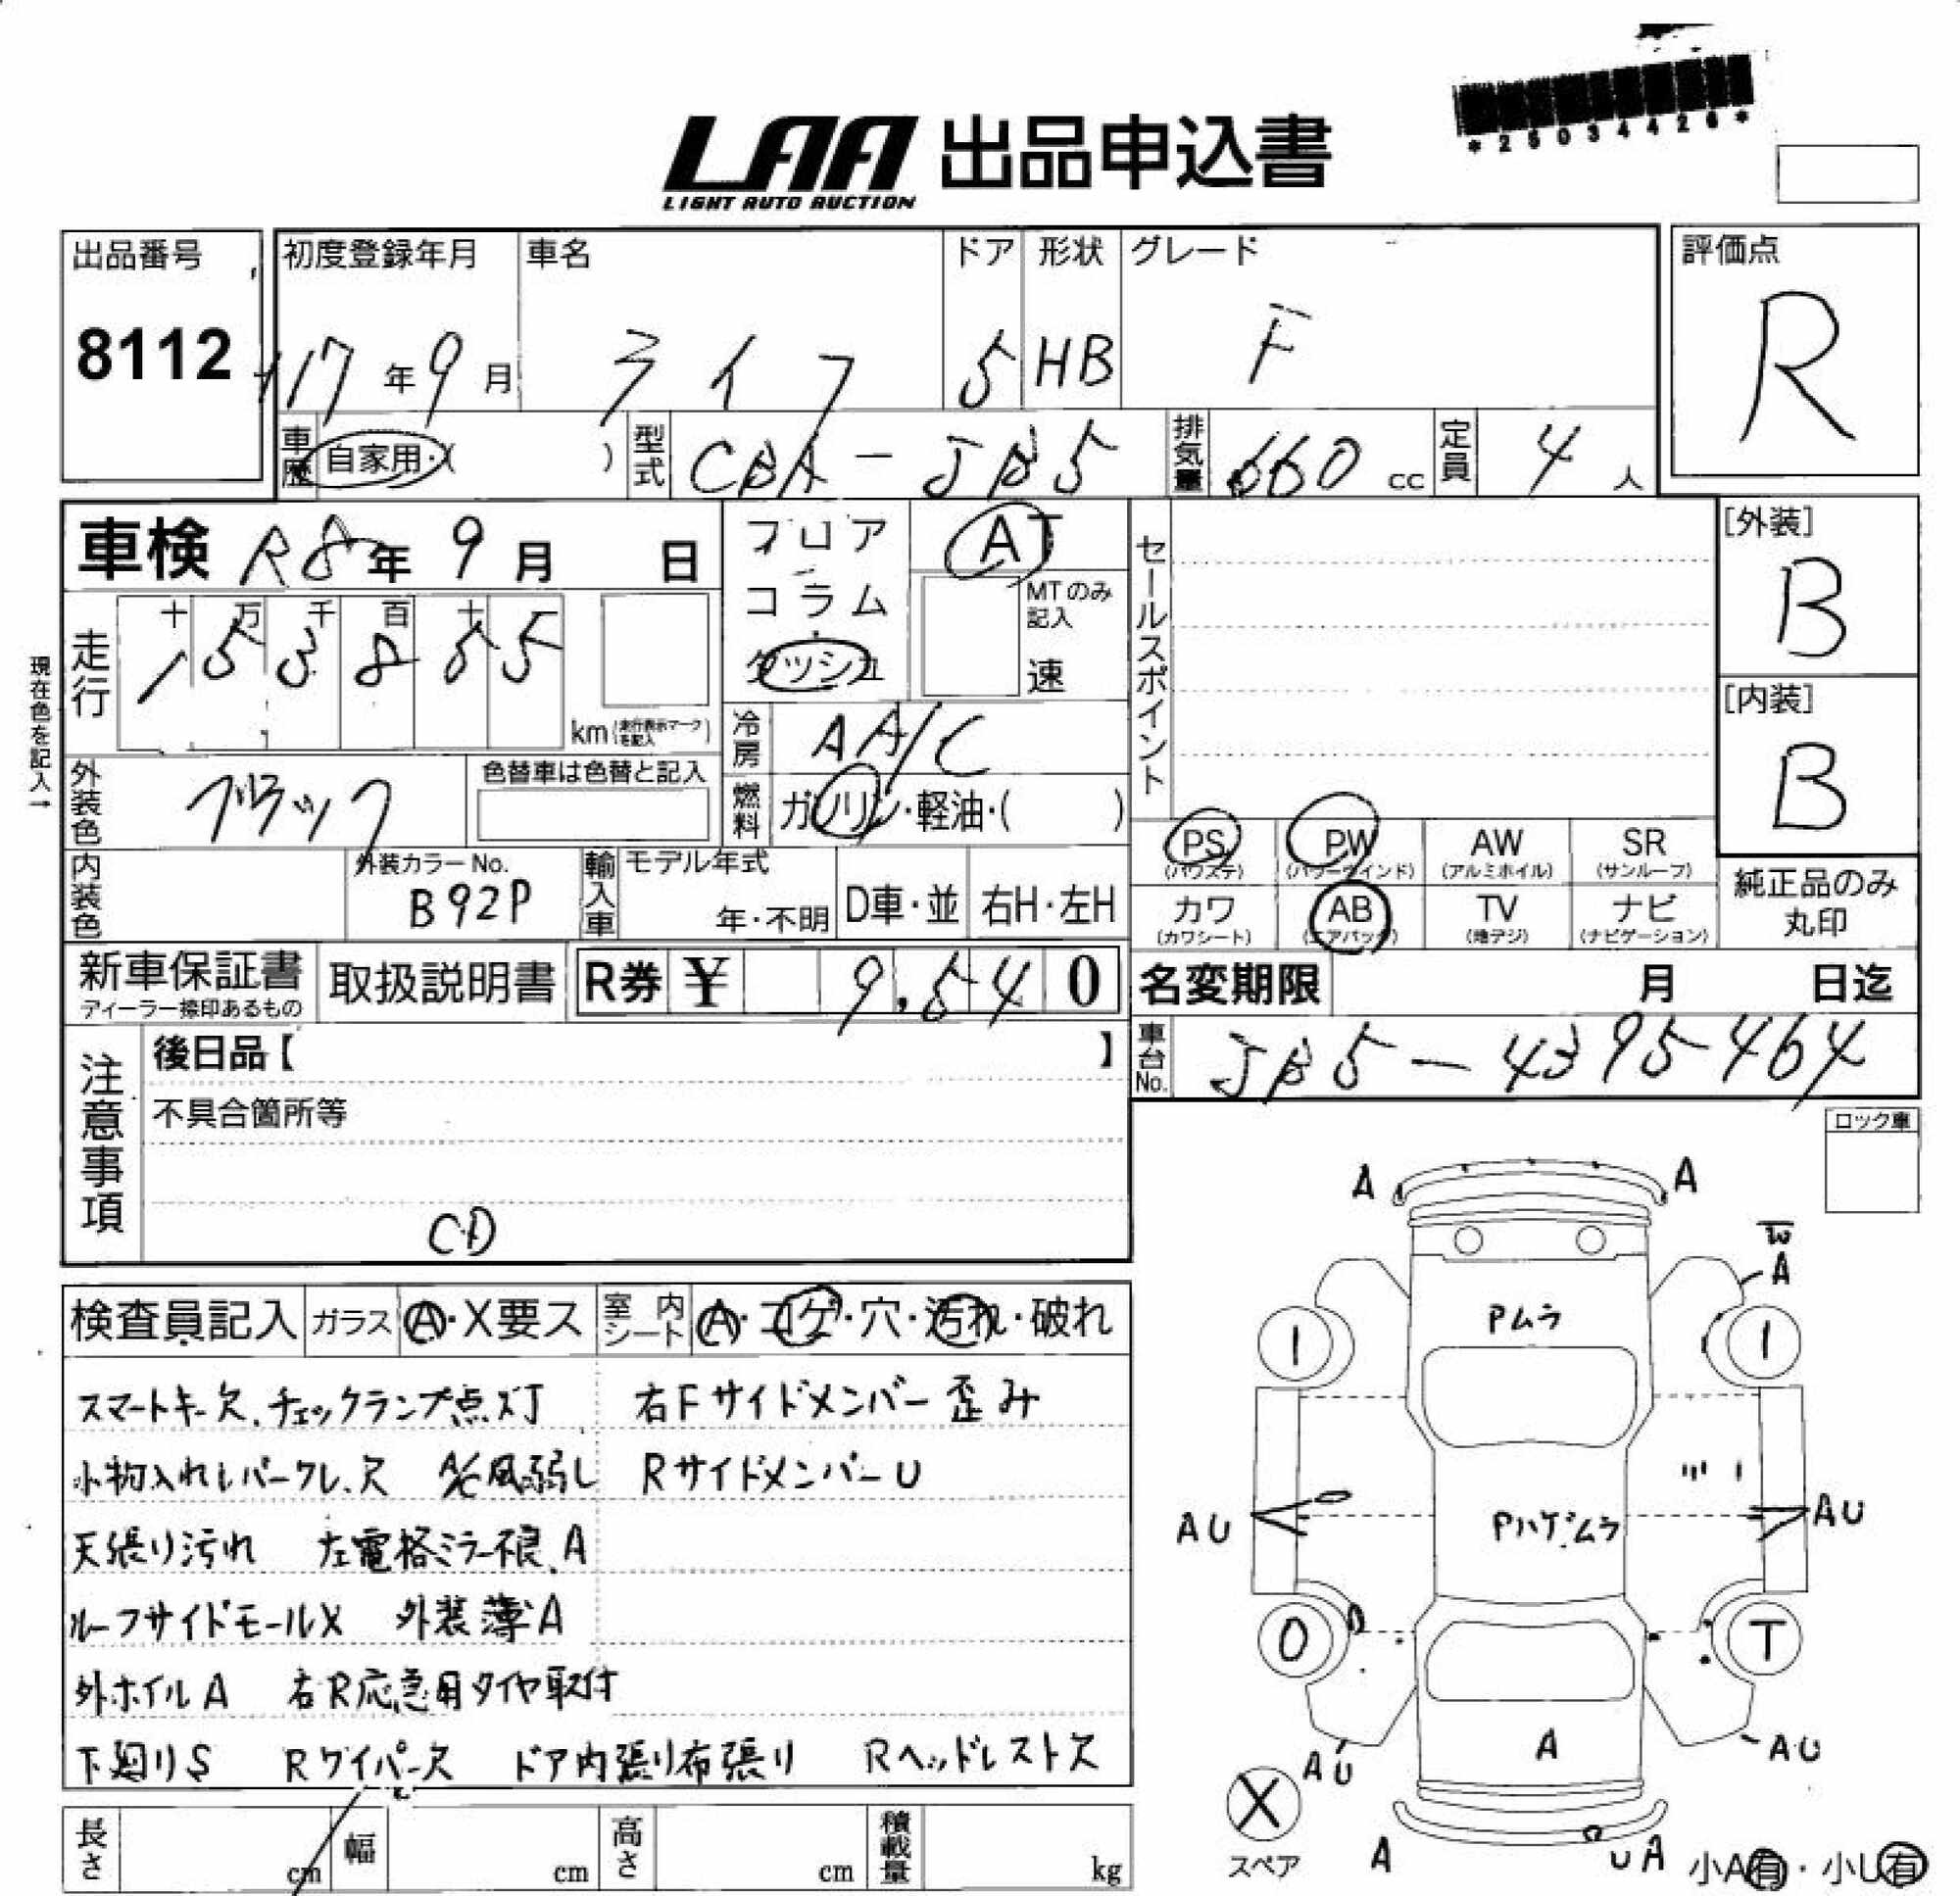 *25034426*
LAA 出品申込書
LIGHT AUTO AUCTION
出品番号
8112
初度登録年月
H17年9月
車名
ライフ
ドア
5
形状
HB
グレード
F
評価点
R
車歴 自家用・( )
型式 CBA-JB5
排気量 660cc
定員 4人
車検 R8年9月 日
フロア
コラム
ダッシュ
AT
MTのみ記入
速
現在色を記入→
走行 十 万 千 百 十
153855
km(走行表示マークを記入)
冷房 AA/C
燃料 ガソリン・軽油・( )
外装色 ブラック
色替車は色替と記入
内装色
外装カラーNo.
B92P
輸入車
モデル年式
年・不明
D車・並
右H・左H
セールスポイント
[外装]
B
[内装]
B
PS
(パワステ)
PW
(パワーウインド)
AW
(アルミホイル)
SR
(サンルーフ)
カワ
(カワシート)
AB
(エアバック)
TV
(地デジ)
ナビ
(ナビゲーション)
純正品のみ
丸印
新車保証書
ディーラー捺印あるもの
取扱説明書
R券 ¥ 9,540
名変期限 月 日迄
車台No. JB5-4395464
注意事項
後日品【 】
不具合箇所等
CD
ロック車
検査員記入
ガラス A・X要ス
室内シート A・コゲ・穴・汚れ・破れ
スマートキー欠、チェックランプ点灯 右Fサイドメンバー歪み
小物入れレバークレ、欠 A/C風弱し RサイドメンバーU
天張り汚れ 左電格ミラー不良、A
ルーフサイドモールX 外装薄A
外ホイルA 右R応急用タイヤ取付
下廻りS Rワイパー欠 ドア内張り布張り Rヘッドレスト欠
長さ cm
幅 cm
高さ cm
積載量 kg
A
A
W
A
Pムラ
1
1
AU
AU
Pハゲ、ムラ
0
T
AU
AU
A
X
スペア
A
UA
小A有・小U有